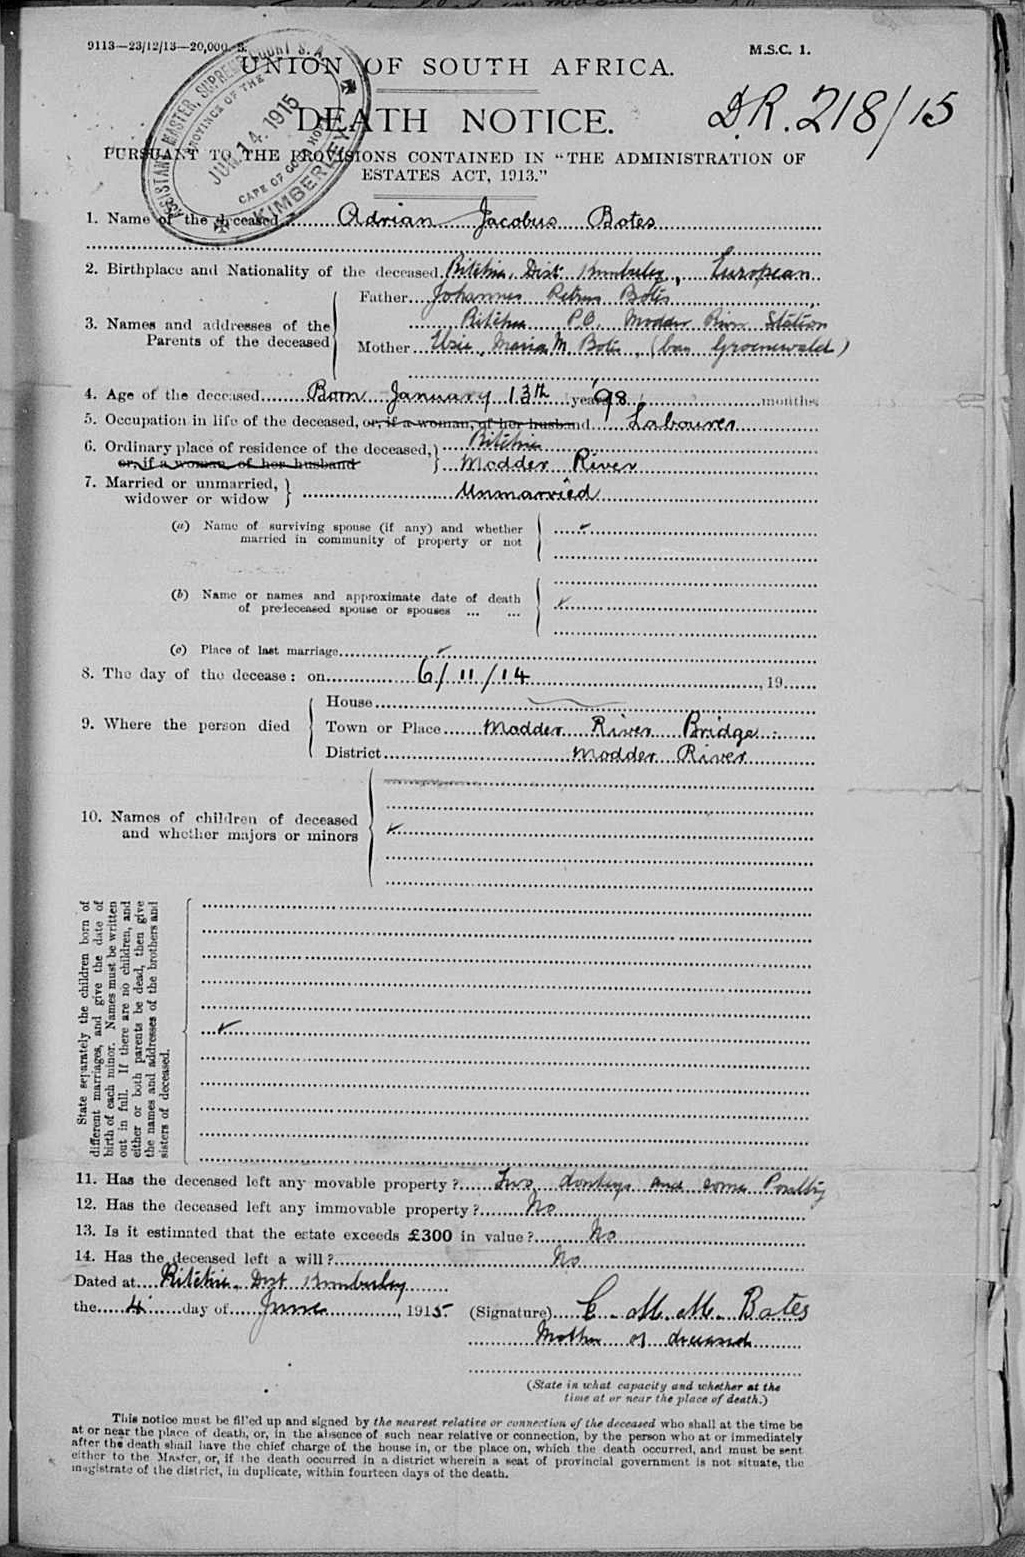 9113—23/12/13—20,000. S.
M.S.C. 1.
UNION OF SOUTH AFRICA.
DEATH NOTICE.
D.R. 218/15
ASSISTANT MASTER, SUPREME COURT S. A.
PROVINCE OF THE
JUN. 14. 1915
CAPE OF GOOD HOPE
KIMBERLEY
PURSUANT TO THE PROVISIONS CONTAINED IN "THE ADMINISTRATION OF
ESTATES ACT, 1913."
1. Name of the deceased Adrian Jacobus Botes
2. Birthplace and Nationality of the deceased Ritchie, Dist Kimberley, European
3. Names and addresses of the Parents of the deceased
Father Johannes Petrus Botes
Ritchie P.O. Modder River Station
Mother Maria M. Botes, (bau Groenewald)
4. Age of the deceased Born January 13th years '98 months
5. Occupation in life of the deceased, or, if a woman, of her husband Labourer
6. Ordinary place of residence of the deceased, Ritchie
or, if a woman, of her husband Modder River
7. Married or unmarried,
widower or widow Unmarried
(a) Name of surviving spouse (if any) and whether
married in community of property or not
(b) Name or names and approximate date of death
of predeceased spouse or spouses ... ...
(c) Place of last marriage
8. The day of the decease: on 6/11/14, 19
9. Where the person died
House
Town or Place Modder River Bridge
District Modder River
10. Names of children of deceased
and whether majors or minors
State separately the children born of
different marriages, and give the date of
birth of each minor. Names must be written
out in full. If there are no children, and
either or both parents be dead, then give
the names and addresses of the brothers and
sisters of deceased.
11. Has the deceased left any movable property? Two donkeys and some Poultry
12. Has the deceased left any immovable property? No
13. Is it estimated that the estate exceeds £300 in value? No
14. Has the deceased left a will? No
Dated at Ritchie, Dist Kimberley
the 4 day of June, 1915 (Signature) C. M. M. Botes
Mother of deceased
(State in what capacity and whether at the
time at or near the place of death.)
This notice must be filled up and signed by the nearest relative or connection of the deceased who shall at the time be
at or near the place of death, or, in the absence of such near relative or connection, by the person who at or immediately
after the death shall have the chief charge of the house in, or the place on, which the death occurred, and must be sent
either to the Master, or, if the death occurred in a district wherein a seat of provincial government is not situate, the
magistrate of the district, in duplicate, within fourteen days of the death.